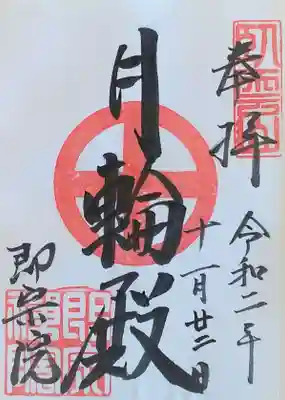 奉拝
令和二年
十一月廿二日
月輪殿
即宗院